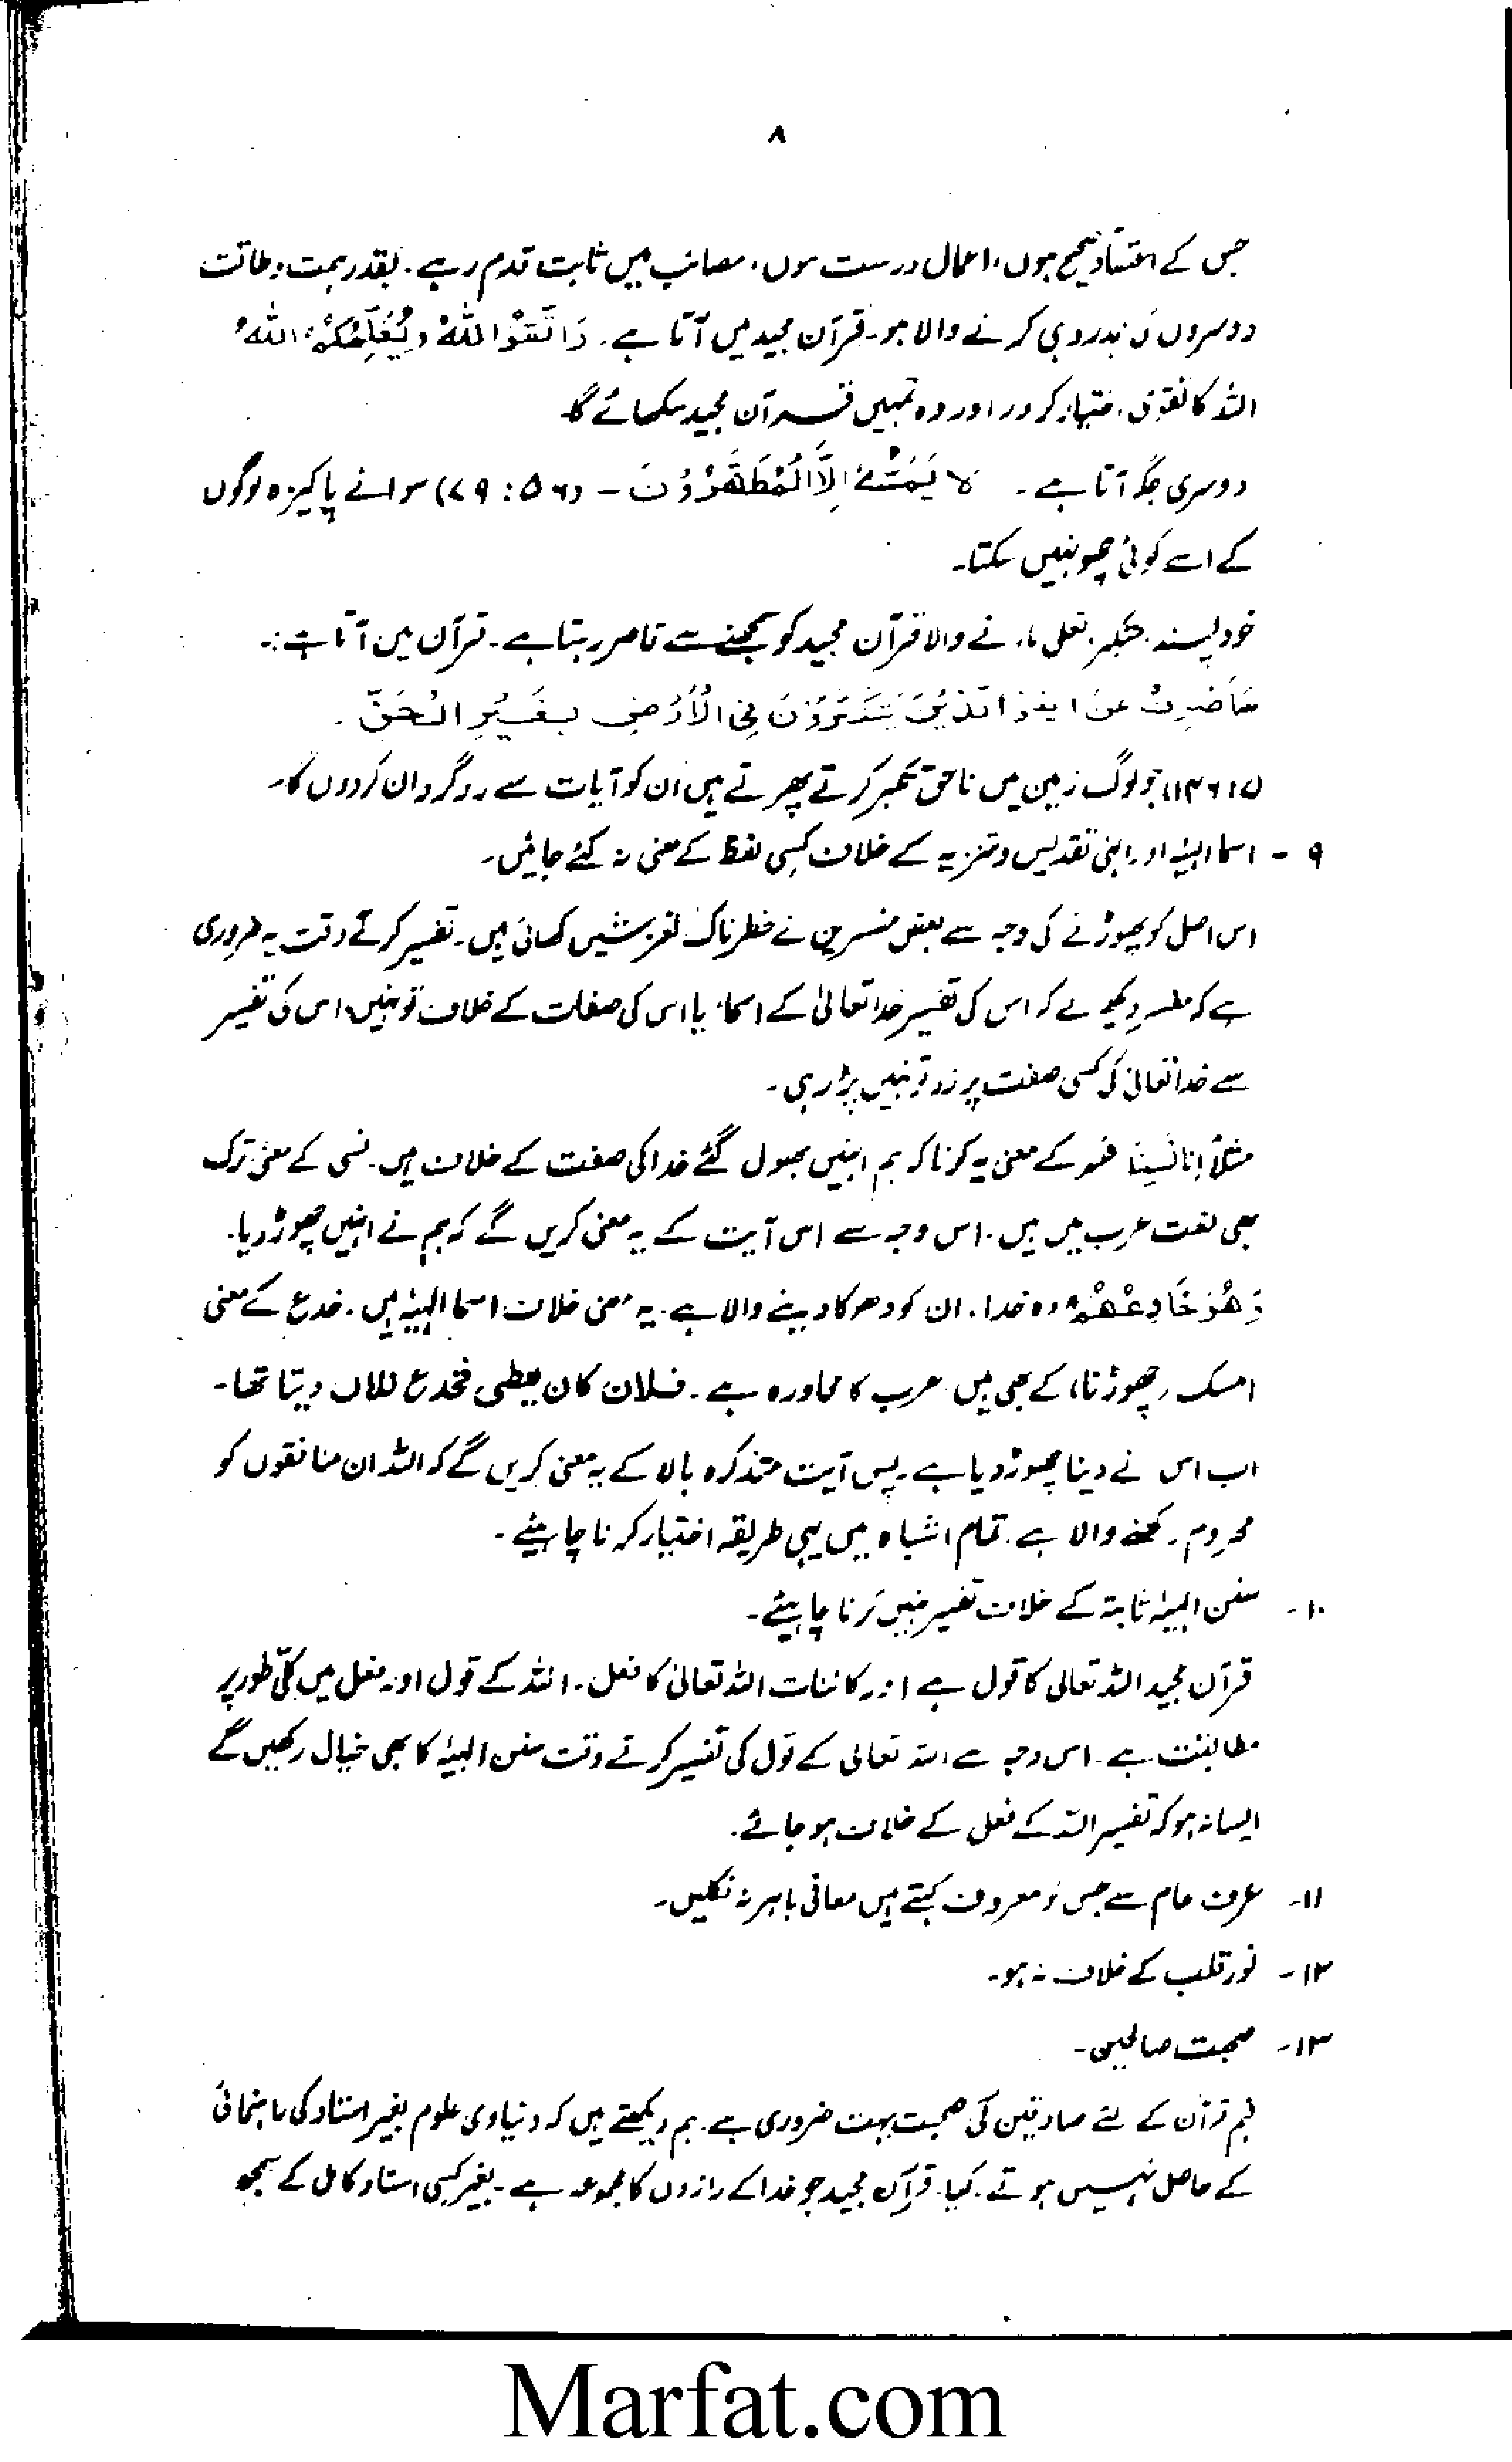 ۸
جس کے اعتقاد صحیح ہوں، اعمال درست ہوں، مصائب میں ثابت قدم رہے۔ بقدر ہمت و طاقت
دوسروں کی ہمدردی کرنے والا ہو۔ قرآن مجید میں آتا ہے۔ وَاتَّقُوا اللّٰہَ وَیُعَلِّمُکُمُ اللّٰہُ
اللہ کا تقویٰ اختیار کرو۔ اور وہ تمہیں قرآن مجید سکھائے گا۔
دوسری جگہ آتا ہے۔ لَا یَمَسُّہٗ اِلَّا الْمُطَہَّرُوْنَ ۔ (۵۶ : ۷۹) سوائے پاکیزہ لوگوں
کے اسے کوئی چھو نہیں سکتا۔
خود پسند، متکبر، تعلی مارنے والا قرآن مجید کو سمجھنے سے قاصر رہتا ہے۔ قرآن میں آتا ہے:۔
سَاَصْرِفُ عَنْ اٰیٰتِیَ الَّذِیْنَ یَتَکَبَّرُوْنَ فِی الْاَرْضِ بِغَیْرِ الْحَقِّ ۔
جو لوگ زمین میں ناحق تکبر کرتے پھرتے ہیں ان کو آیات سے روگردان کردوں گا۔
۹ ۔ اسما الہیٰہ اور اپنی تقدیس و تنزیہ کے خلاف کسی لفظ کے معنی نہ کئے جائیں۔
اس اصل کو چھوڑنے کی وجہ سے بعض مفسرین نے خطرناک لغزشیں کھائی ہیں۔ تفسیر کرتے وقت یہ ضروری
ہے کہ مفسر دیکھ لے کہ اس کی تفسیر خدا تعالیٰ کے اسماء یا اس کی صفات کے خلاف تو نہیں، اس کی تفسیر
سے خدا تعالیٰ کی کسی صفت پر زد تو نہیں پڑ رہی۔
مثلاً اِنَّا نَسِیْنَا کے معنی یہ کرنا کہ ہم انہیں بھول گئے خدا کی صفت کے خلاف ہیں۔ نسی کے معنی ترک
بھی لغت عرب میں ہیں۔ اس وجہ سے اس آیت کے یہ معنی کریں گے کہ ہم نے انہیں چھوڑ دیا۔
وَھُوَ خَادِعُھُمْ وہ خدا، ان کو دھوکا دینے والا ہے۔ یہ معنی خلاف اسما الہیٰہ ہیں۔ خدع کے معنی
امسک (چھوڑنا) کے بھی ہیں عرب کا محاورہ ہے۔ فلان کان یعطی فخدع فلاں دیتا تھا۔
اب اس نے دینا چھوڑ دیا ہے۔ پس آیت متذکرہ بالا کے یہ معنی کریں گے کہ اللہ ان منافقوں کو
محروم رکھنے والا ہے۔ تمام اشباہ میں یہی طریقہ اختیار کرنا چاہیئے۔
۱۰۔ سنن الہیٰہ ثابتہ کے خلاف تفسیر نہیں کرنا چاہیئے۔
قرآن مجید اللہ تعالی کا قول ہے اور کائنات اللہ تعالیٰ کا فعل۔ اللہ کے قول اور فعل میں کلّی طور پر
مطابقت ہے۔ اس وجہ سے اللہ تعالی کے قول کی تفسیر کرتے وقت سنن الہیٰہ کا بھی خیال رکھیں گے
ایسا نہ ہو کہ تفسیر اللہ کے فعل کے خلاف ہو جائے۔
۱۱۔ عرف عام سے جس کو معروف کہتے ہیں معانی باہر نہ نکلیں۔
۱۲۔ نور قلب کے خلاف نہ ہو۔
۱۳۔ صحبت صالحین۔
فہم قرآن کے لئے صادقین کی صحبت بہت ضروری ہے۔ ہم دیکھتے ہیں کہ دنیاوی علوم بغیر استاد کی راہنمائی
کے حاصل نہیں ہوتے۔ کیا قرآن مجید جو خدا کے رازوں کا مجموعہ ہے۔ بغیر کسی استاد کامل کے سمجھ
Marfat.com